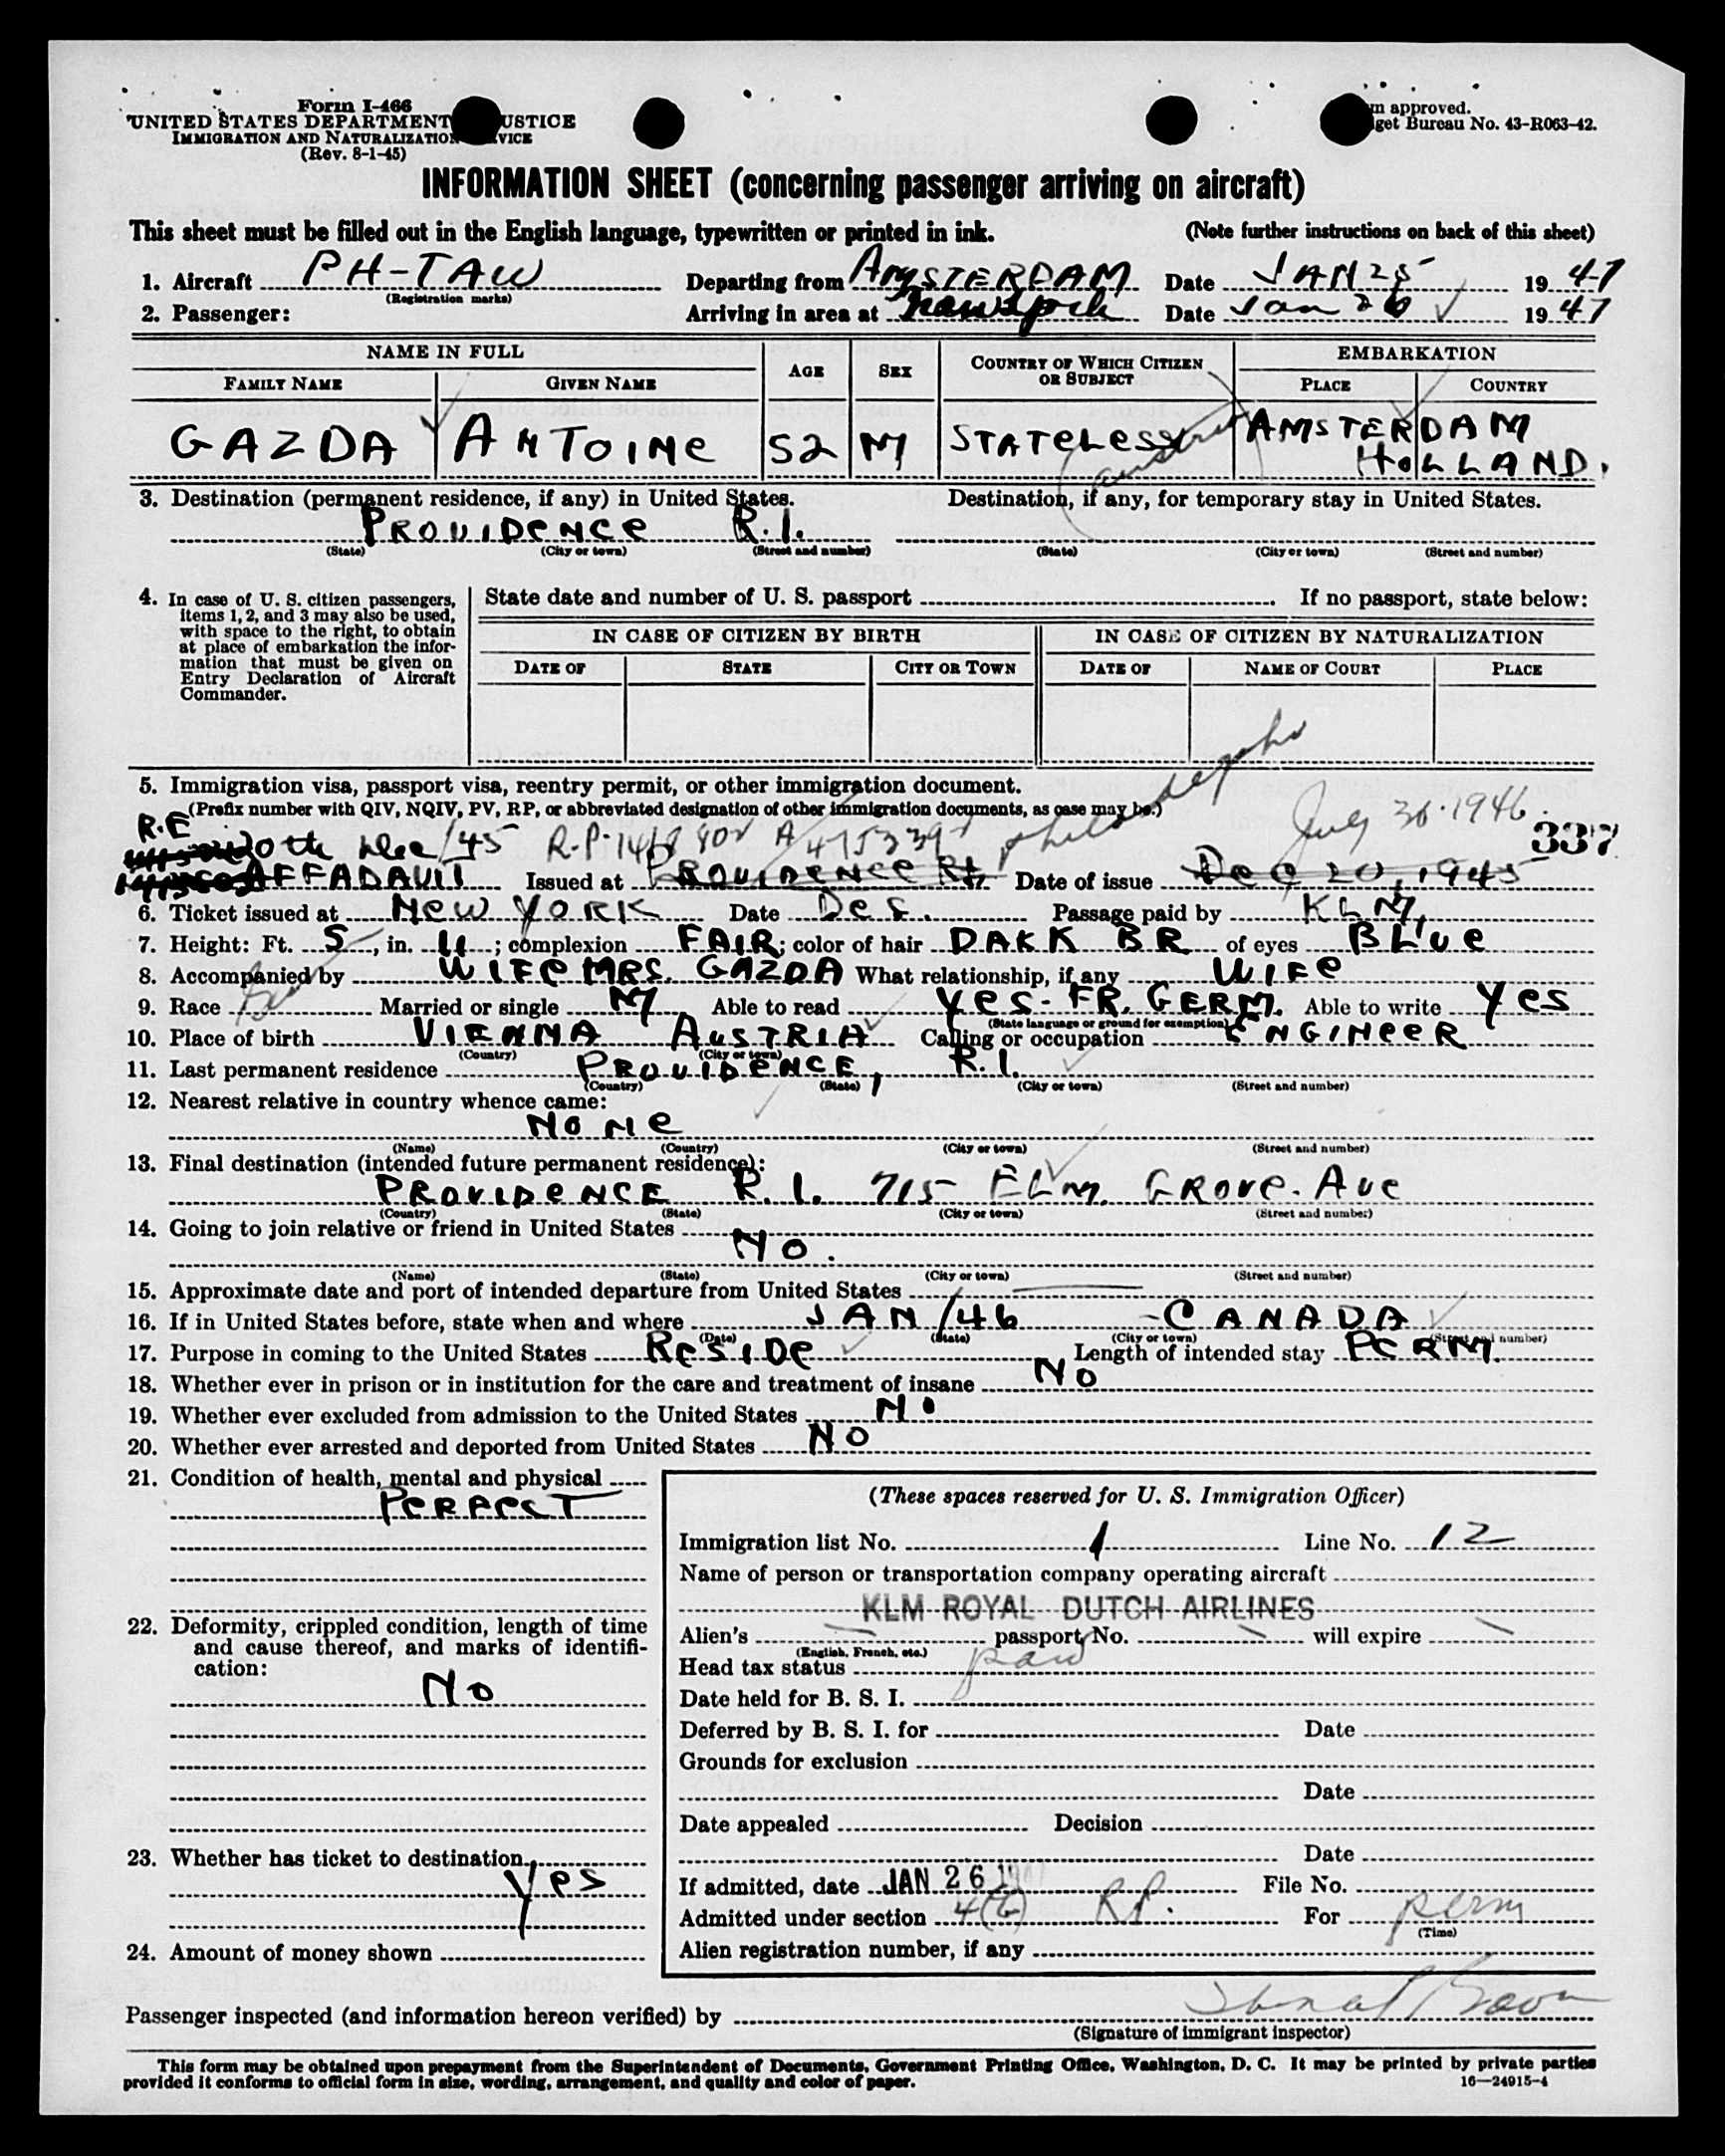 Form I-466
UNITED STATES DEPARTMENT USTICE
IMMIGRATION AND NATURALIZATION VICE
(Rev. 8-1-45)
m approved.
get Bureau No. 43-R063-42.
INFORMATION SHEET (concerning passenger arriving on aircraft)
This sheet must be filled out in the English language, typewritten or printed in ink. (Note further instructions on back of this sheet)
1. Aircraft PH-TAW Departing from AMSTERDAM Date JAN 25 1947
(Registration marks)
2. Passenger: Arriving in area at New York Date Jan 26 1947
NAME IN FULL AGE SEX COUNTRY OF WHICH CITIZEN OR SUBJECT EMBARKATION
FAMILY NAME GIVEN NAME PLACE COUNTRY
GAZDA ANTOINE 52 M STATELESS (Austria) AMSTERDAM
HOLLAND.
3. Destination (permanent residence, if any) in United States. Destination, if any, for temporary stay in United States.
PROVIDENCE R.I.
(State) (City or town) (Street and number) (State) (City or town) (Street and number)
4. In case of U. S. citizen passengers, items 1, 2, and 3 may also be used, with space to the right, to obtain at place of embarkation the information that must be given on Entry Declaration of Aircraft Commander.
State date and number of U. S. passport If no passport, state below:
IN CASE OF CITIZEN BY BIRTH IN CASE OF CITIZEN BY NATURALIZATION
DATE OF STATE CITY OR TOWN DATE OF NAME OF COURT PLACE
5. Immigration visa, passport visa, reentry permit, or other immigration document.
(Prefix number with QIV, NQIV, PV, RP, or abbreviated designation of other immigration documents, as case may be.)
R.E
20th Dec/45 R.P. Philadelphia July 30.1946. 337
AFFADAVIT Issued at PROVIDENCE R.I. Date of issue Dec 20, 1945
6. Ticket issued at NEW YORK Date DEC. Passage paid by KLM.
7. Height: Ft. 5, in. 11; complexion FAIR; color of hair DARK BR of eyes BLUE
8. Accompanied by WIFE MRS. GAZDA What relationship, if any WIFE
9. Race Married or single M Able to read YES- FR, GERM. Able to write YES
(State language or ground for exemption)
10. Place of birth VIENNA AUSTRIA Calling or occupation ENGINEER
(Country) (City or town)
11. Last permanent residence PROVIDENCE, R.I.
(Country) (State) (City or town) (Street and number)
12. Nearest relative in country whence came:
NONE
(Name) (Country) (City or town) (Street and number)
13. Final destination (intended future permanent residence):
PROVIDENCE R.I. 715 ELM. GROVE. AVE
(Country) (State) (City or town) (Street and number)
14. Going to join relative or friend in United States
NO.
(Name) (State) (City or town) (Street and number)
15. Approximate date and port of intended departure from United States
16. If in United States before, state when and where JAN/46 - CANADA
(Date) (State) (City or town) (Street and number)
17. Purpose in coming to the United States RESIDE Length of intended stay PERM.
18. Whether ever in prison or in institution for the care and treatment of insane NO
19. Whether ever excluded from admission to the United States NO
20. Whether ever arrested and deported from United States NO
21. Condition of health, mental and physical
PERFECT
22. Deformity, crippled condition, length of time and cause thereof, and marks of identification:
NO
23. Whether has ticket to destination
YES
24. Amount of money shown
(These spaces reserved for U. S. Immigration Officer)
Immigration list No. 1 Line No. 12
Name of person or transportation company operating aircraft
KLM ROYAL DUTCH AIRLINES
Alien's passport No. will expire
(English, French, etc.)
Head tax status paid
Date held for B. S. I.
Deferred by B. S. I. for Date
Grounds for exclusion
Date
Date appealed Decision
Date
If admitted, date JAN 26 1947 File No.
Admitted under section 4(b) RP. For perm
(Time)
Alien registration number, if any
Passenger inspected (and information hereon verified) by
(Signature of immigrant inspector)
This form may be obtained upon prepayment from the Superintendent of Documents, Government Printing Office, Washington, D. C. It may be printed by private parties
provided it conforms to official form in size, wording, arrangement, and quality and color of paper. 16—24915-4